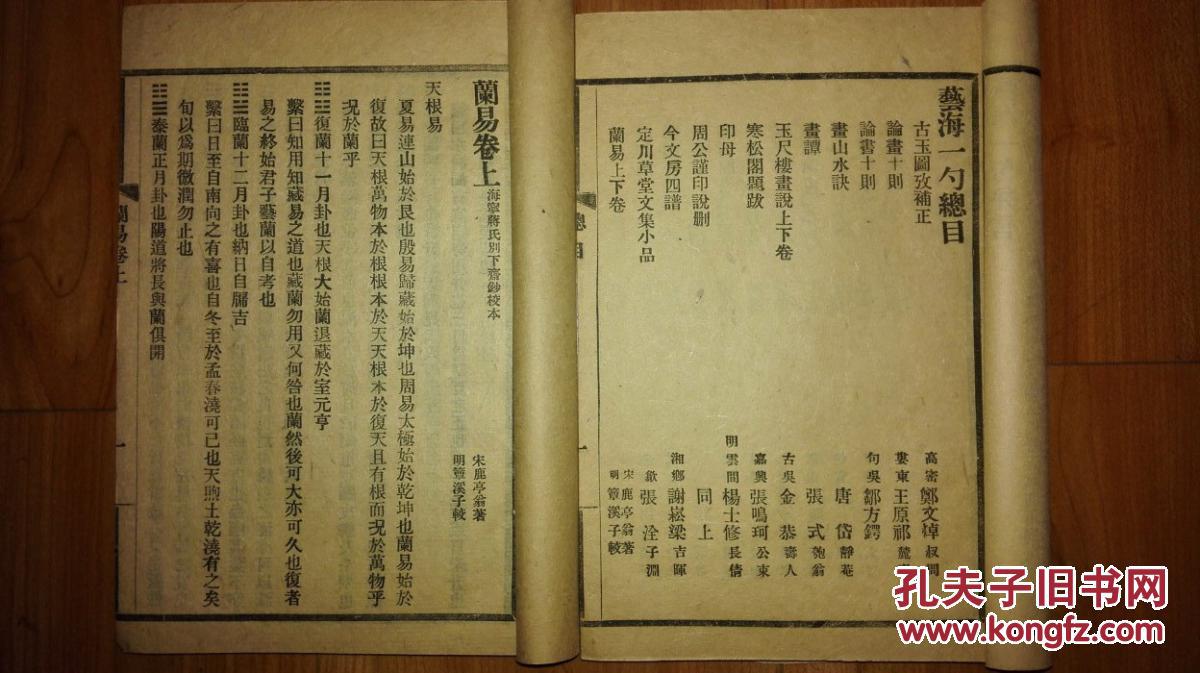 藝海一勺總目
古玉圖攷補正 高密 鄭文焯 叔問
論畫十則 婁東 王原祁 麓
論書十則 句吳 鄒方鍔
畫山水訣 唐岱 靜菴
畫譚 張式 荑翁
玉尺樓畫說上下卷 古吳 金恭 壽人
寒松閣題跋 嘉興 張鳴珂 公東
印母 明雲間 楊士修 長倩
周公謹印說刪 同上
今文房四譜 湘鄉 謝崧梁 吉暉
定川草堂文集小品 歙 張淦 子淵
蘭易上下卷 宋鹿亭翁著 明簟溪子較
總目
一
蘭易卷上 海寧蔣氏別下齋鈔校本
宋鹿亭翁著
明簟溪子較
天根易
夏易連山始於艮也殷易歸藏始於坤也周易太極始於乾坤也蘭易始於
復故曰天根萬物本於根根本於天天根本於復天且有根而况於萬物乎
况於蘭乎
䷗復蘭十一月卦也天根大始蘭退藏於室元亨
繫曰知用知藏易之道也藏蘭勿用又何咎也蘭然後可大亦可久也復者
易之終始君子藝蘭以自考也
䷒臨蘭十二月卦也納日自牖吉
繫曰日至自南向之有喜也自冬至於孟春澆可已也天煦土乾澆有之矣
旬以爲期微潤勿止也
䷊泰蘭正月卦也陽道將長與蘭俱開
蘭易卷上
一
孔夫子旧书网
www.kongfz.com